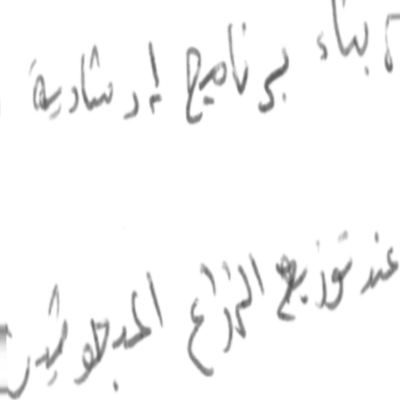 بناء برنامج إرشادية
عند توزيع الزراع المبحوثين